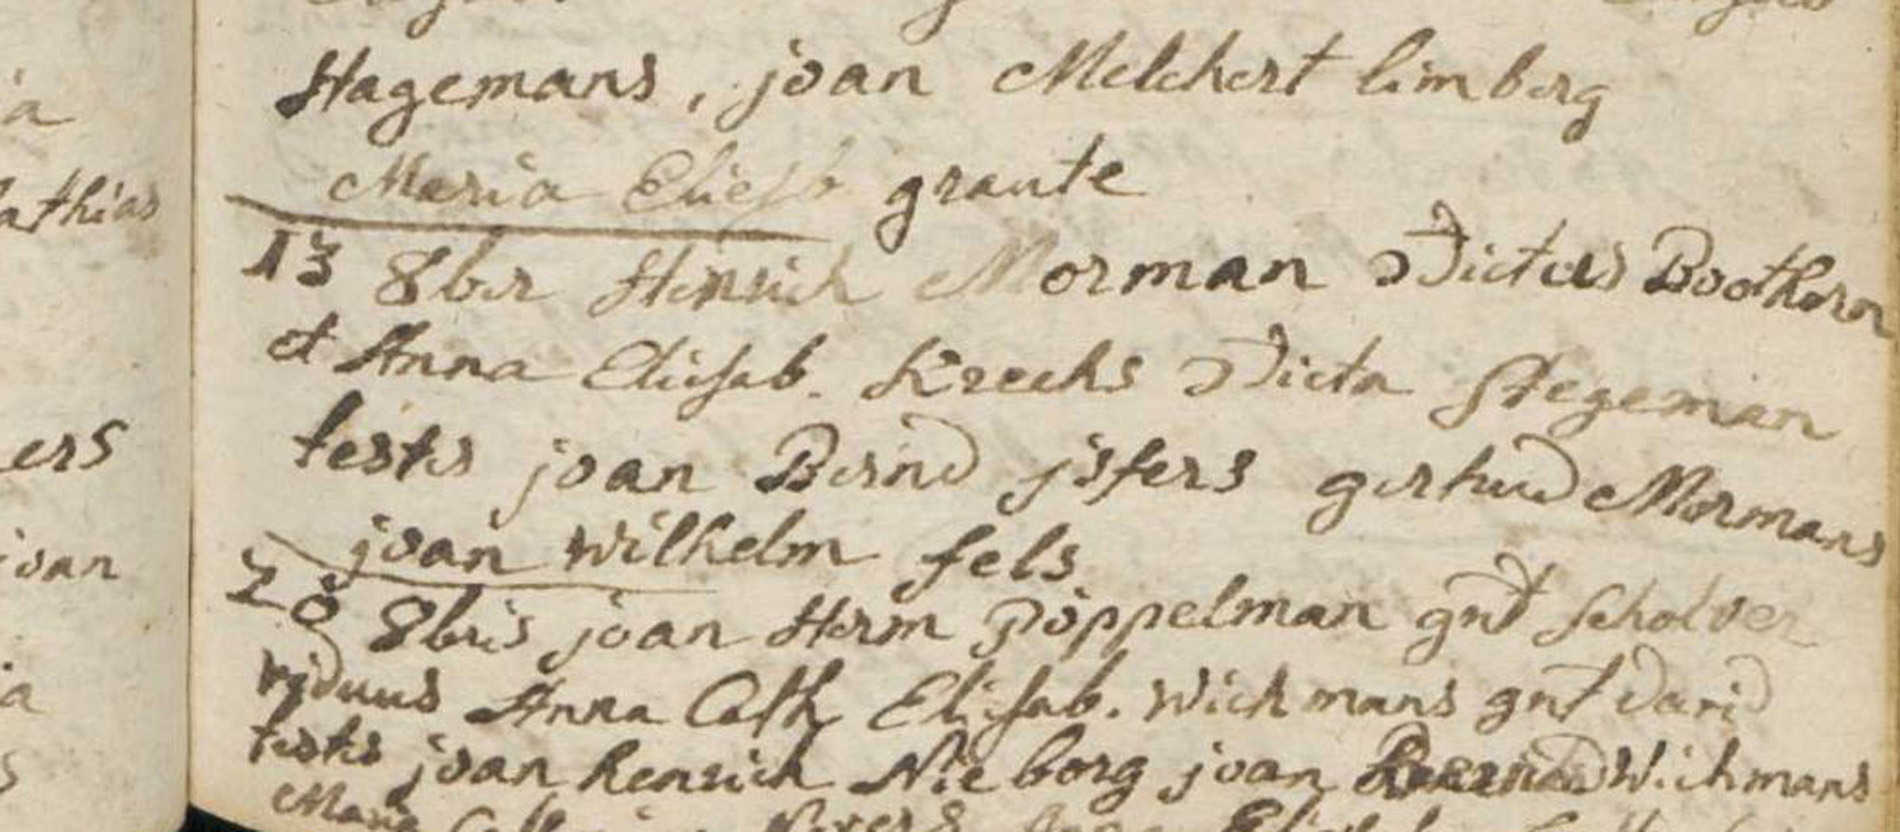 Hagemans, joan Melchert limberg
Maria Eliesb graute
13 8ber Henrich Morman Dictus Boothorn
et Anna Eliesab. Kreehs Dicta Stegeman
testes joan Bernd jsfers gertrud Mormans
joan wilhelm fels
20 8bris joan Herm Pöppelman gnt Scholver
viduus Anna Cath Elisab. Wichmans gnt David
testes joan henrich Nieborg joan Wichmans
Maria
athias
ers
joan